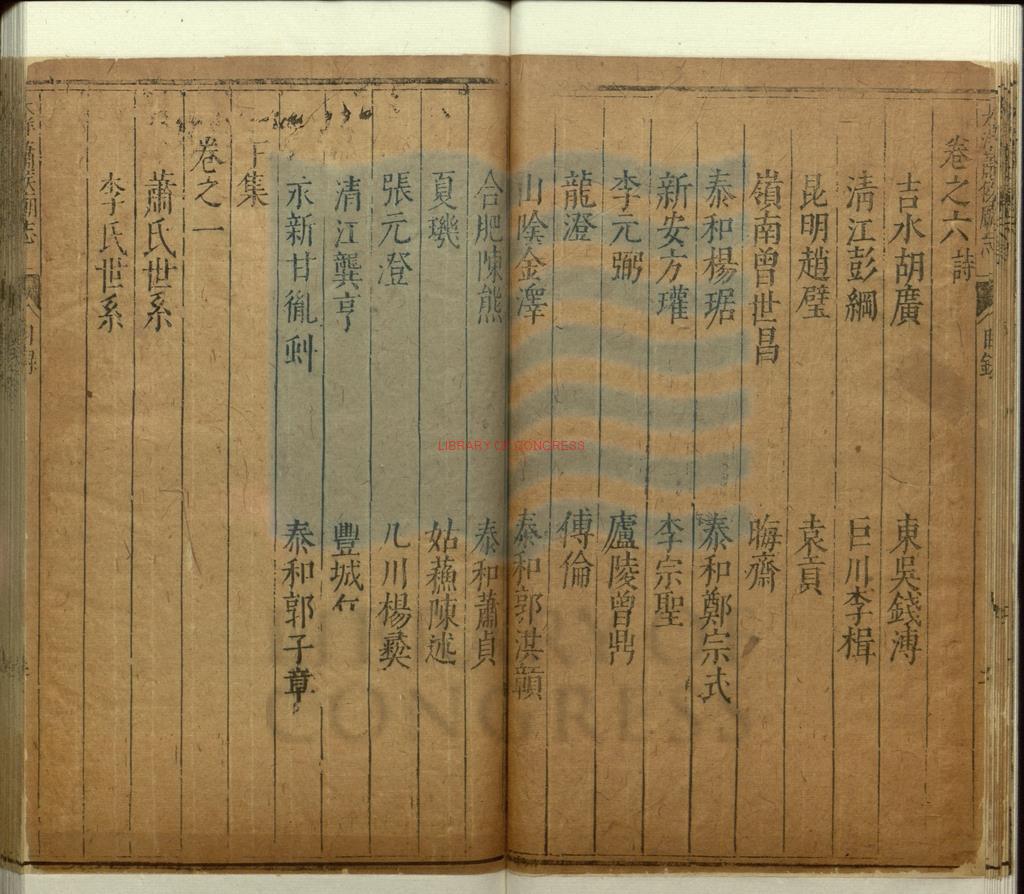 卷之六 詩
吉水胡廣 東吳錢溥
清江彭綱 巨川李楫
昆明趙璧 袁貢
嶺南曾世昌 晦齋
泰和楊琚 泰和鄭宗式
新安方瓘 李宗聖
李元弼 廬陵曾鼎
龍澄 傅倫
山陰金澤 泰和郭洪
合肥陳熊 泰和蕭貞
夏璣 姑蘇陳述
張元澄 楊彜
清江龔亨 豐城
永新甘 泰和郭子章
下集
卷之一
蕭氏世系
李氏世系
目錄
LIBRARY OF CONGRESS
LIBRARY OF CONGRESS